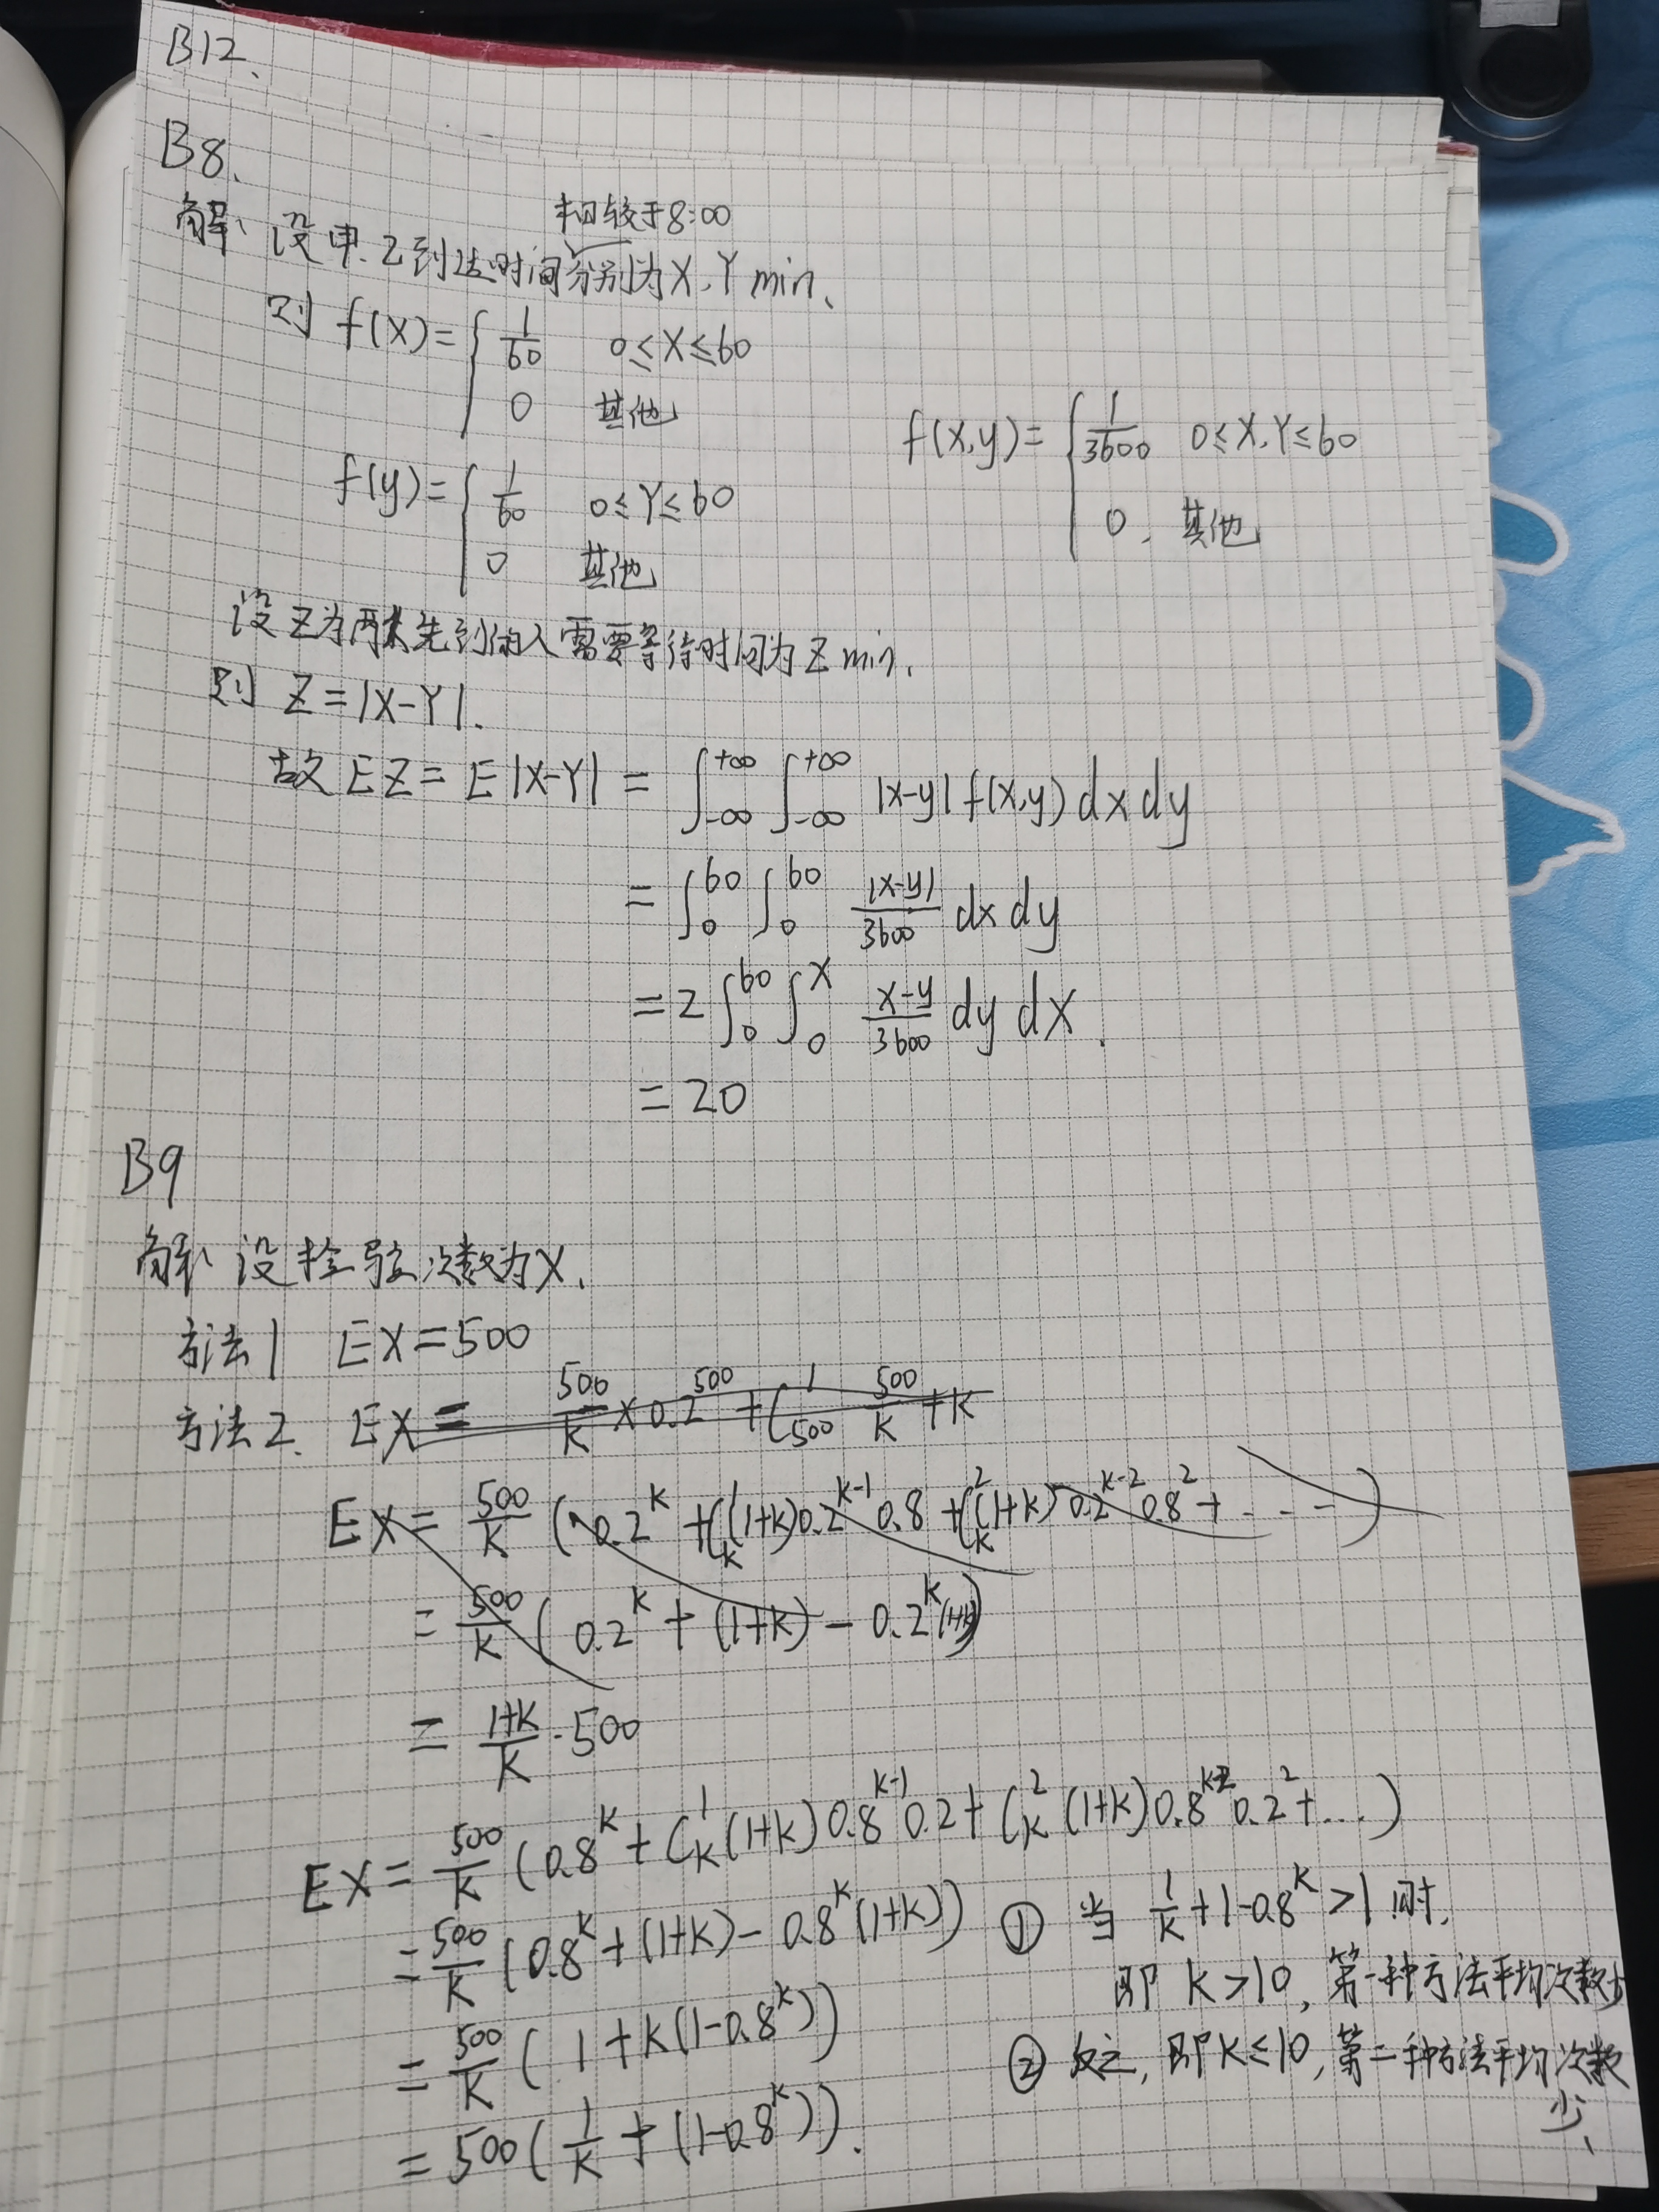 B12、
B8、
相较于8:00
解、设甲.乙到达时间分别为X,Y min、
则 f(x)={ 1/60 0≤X≤60
0 其他
f(x,y)={ 1/3600 0≤X,Y≤60
0, 其他
f(y)={ 1/60 0≤Y≤60
0 其他
设Z为两人先到的人需要等待时间为Z min,
则 Z=|X-Y|.
故EZ=E|X-Y|=∫_{-∞}^{+∞}∫_{-∞}^{+∞} |x-y|f(x,y)dxdy
=∫_0^{60}∫_0^{60} |x-y|/3600 dxdy
=2∫_0^{60}∫_0^x (x-y)/3600 dydx.
=20
B9
解、设检验次数为X、
方法1 EX=500
方法2. EX= 500/K×0.2^{500}+C_{500}^1 500/K+K
EX=500/K(0.2^K+C_K^1(1+K)0.2^{K-1}0.8+C_K^2(1+K)0.2^{K-2}0.8^2+...-)
=500/K(0.2^K+(1+K)-0.2^K(1+K))
=(1+K)/K·500
EX=500/K(0.8^K+C_K^1(1+K)0.8^{K-1}0.2+C_K^2(1+K)0.8^{K-2}0.2^2+...)
=500/K(0.8^K+(1+K)-0.8^K(1+K))
=500/K(1+K(1-0.8^K))
=500(1/K+(1-0.8^K)).
① 当 1/K+1-0.8^K>1时,
即 K>10, 第一种方法平均次数少
② 反之, 即K≤10, 第二种方法平均次数
少、